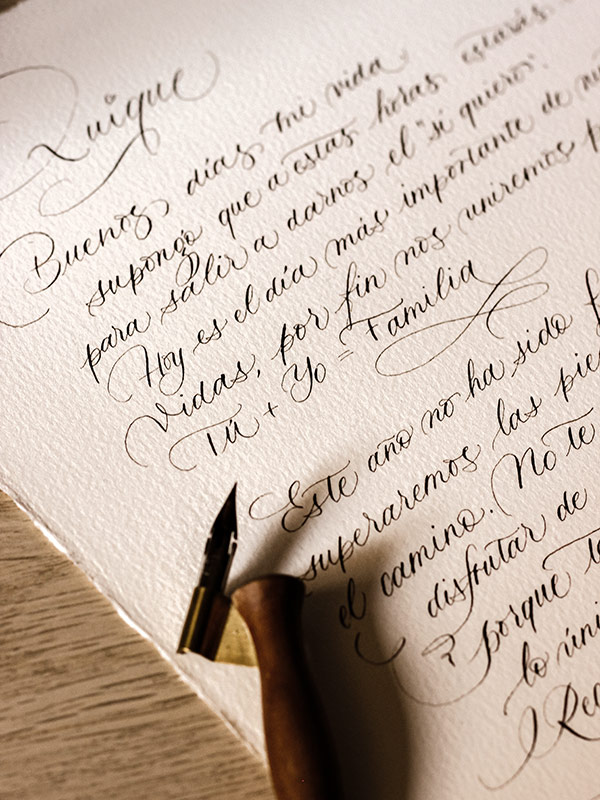 Quique
Buenos días, mi vida.
supongo que a estas horas estarás
para salir a darnos el "sí quiero".
Hoy es el día más importante de
Vidas, por fin nos uniremos
Tú + Yo = Familia
Este año no ha sido
superaremos las
el camino. (No te
disfrutar de
porque
lo